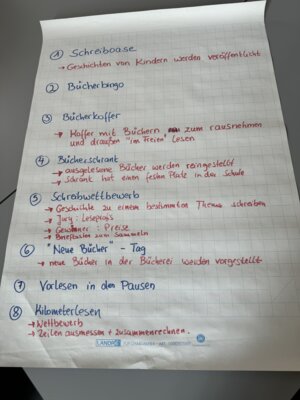 ① Schreiboase
→ Geschichten von Kindern werden veröffentlicht
② Bücherbingo
③ Bücherkoffer
→ Koffer mit Büchern zum rausnehmen
und draußen "im Freien" lesen
④ Bücherschrank
→ ausgelesene Bücher werden reingestellt
→ Schrank hat einen festen Platz in der Schule
⑤ Schreibwettbewerb
→ Geschichte zu einem bestimmten Thema schreiben
→ Jury: Leseprofis
→ Gewinner: Preise
→ Briefkasten zum Sammeln
⑥ "Neue Bücher" - Tag
→ neue Bücher in der Bücherei werden vorgestellt
⑦ Vorlesen in den Pausen
⑧ Kilometerlesen
→ Wettbewerb
→ Zeilen ausmessen + zusammenrechnen.